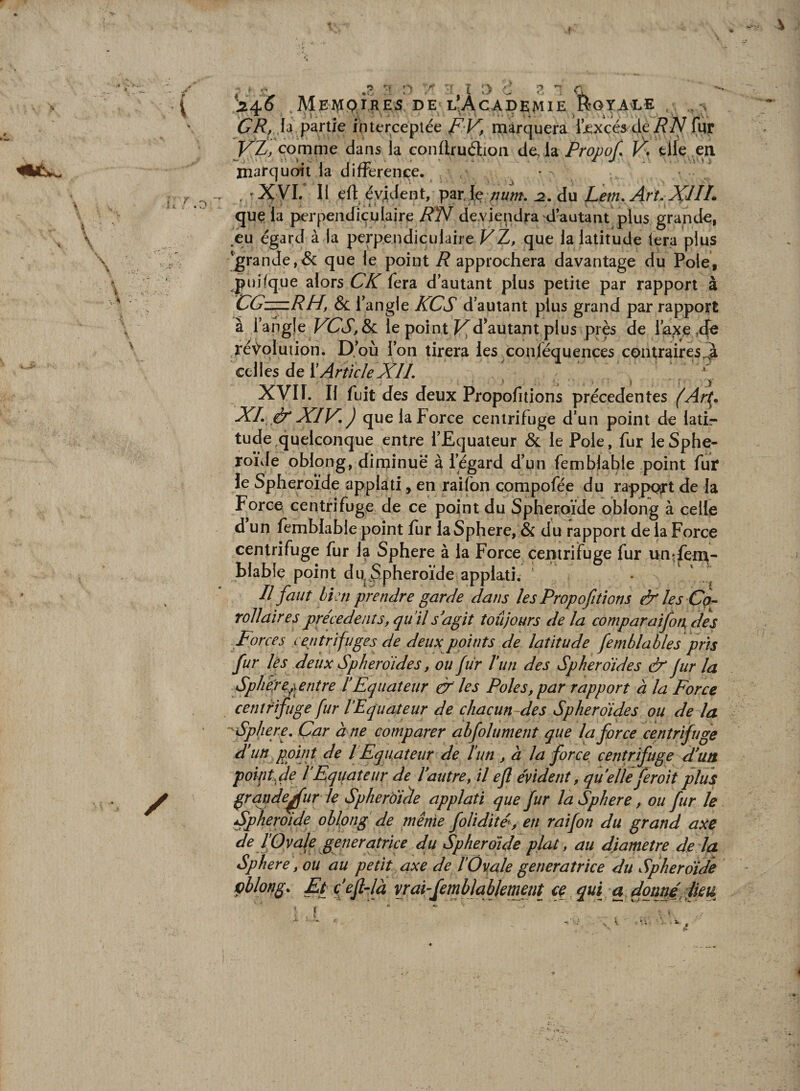 246 MEMOIRES DE L'ACADEMIE ROYALE
GR, la partie interceptée FV, marquera l'excés de RN sur
VZ, comme dans la construction de la Propos. V. elle en
marquoit la difference.
XVI. Il est évident, par le num. 2. du Lem. Art. XIII.
que la perpendiculaire RN deviendra d'autant plus grande,
eu égard à la perpendiculaire VZ, que la latitude sera plus
grande, & que le point R approchera davantage du Pole,
puisque alors CK sera d'autant plus petite par rapport à
CG=RH, & l'angle KCS d'autant plus grand par rapport
à l'angle VCS, & le point V d'autant plus près de l'axe de
révolution. D'où l'on tirera les conséquences contraires à
celles de l'Article XII.
XVII. Il suit des deux Propositions précedentes (Art.
XI. & XIV.) que la Force centrifuge d'un point de lati-
tude quelconque entre l'Equateur & le Pole, sur le Sphe-
roïde oblong, diminuë à l'égard d'un semblable point sur
le Spheroïde applati, en raison composée du rapport de la
Force centrifuge de ce point du Spheroïde oblong à celle
d'un semblable point sur la Sphere, & du rapport de la Force
centrifuge sur la Sphere à la Force centrifuge sur un sem-
blable point du Spheroïde applati.
Il faut bien prendre garde dans les Propositions & les Co-
rollaires précedents, qu'il s'agit toûjours de la comparaison des
Forces centrifuges de deux points de latitude semblables pris
sur les deux Spheroïdes, ou sur l'un des Spheroïdes & sur la
Sphére, entre l'Equateur & les Poles, par rapport à la Force
centrifuge sur l'Equateur de chacun des Spheroïdes ou de la
Sphere. Car à ne comparer absolument que la force centrifuge
d'un point de l'Equateur de l'un, à la force centrifuge d'un
point de l'Equateur de l'autre, il est évident, qu'elle seroit plus
grande sur le Spheroïde applati que sur la Sphere, ou sur le
Spheroïde oblong de même solidité, en raison du grand axe
de l'Ovale generatrice du Spheroïde plat, au diametre de la
Sphere, ou au petit axe de l'Ovale generatrice du Spheroïde
oblong. Et c'est-là vrai-semblablement ce qui a donné lieu